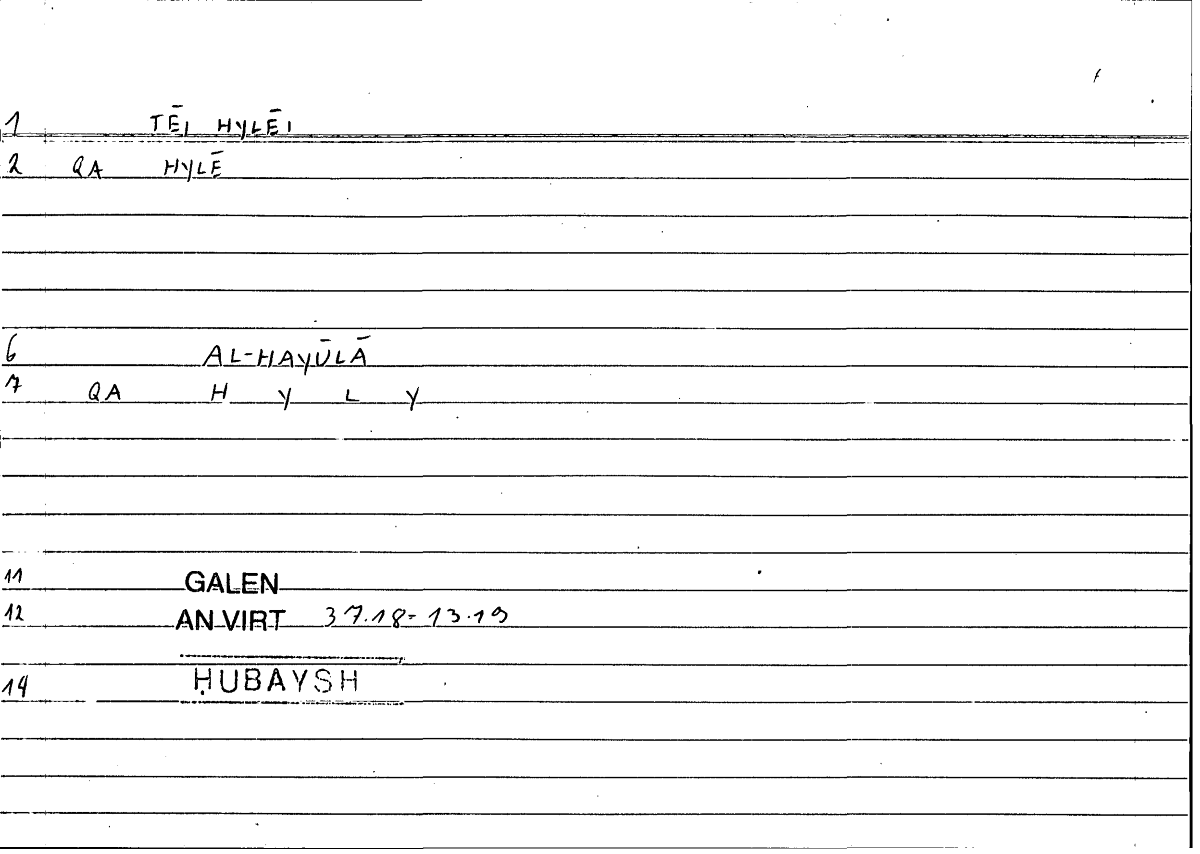 1 TĒI HYLĒI
2 QA HYLĒ
6 AL-HAYŪLĀ
7 QA H Y L Y
11 GALEN
12 AN VIRT 37.18-13.19
14 ḤUBAYSH